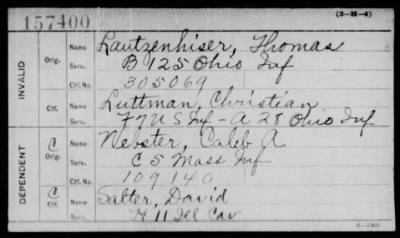 157400
(3-H-4)
INVALID
Orig.
Name Lautzenhiser, Thomas
Serv. B 125 Ohio Inf
Ctf. No. 305069
Ctf.
Name Luttman, Christian
Serv. F 7 U S Inf - A 28 Ohio Inf
DEPENDENT
C Orig.
Name Webster, Caleb A
Serv. C 5 Mass Inf
Ctf. No. 109140
C Ctf.
Name Salter, David
Serv. H 11 Ill Cav